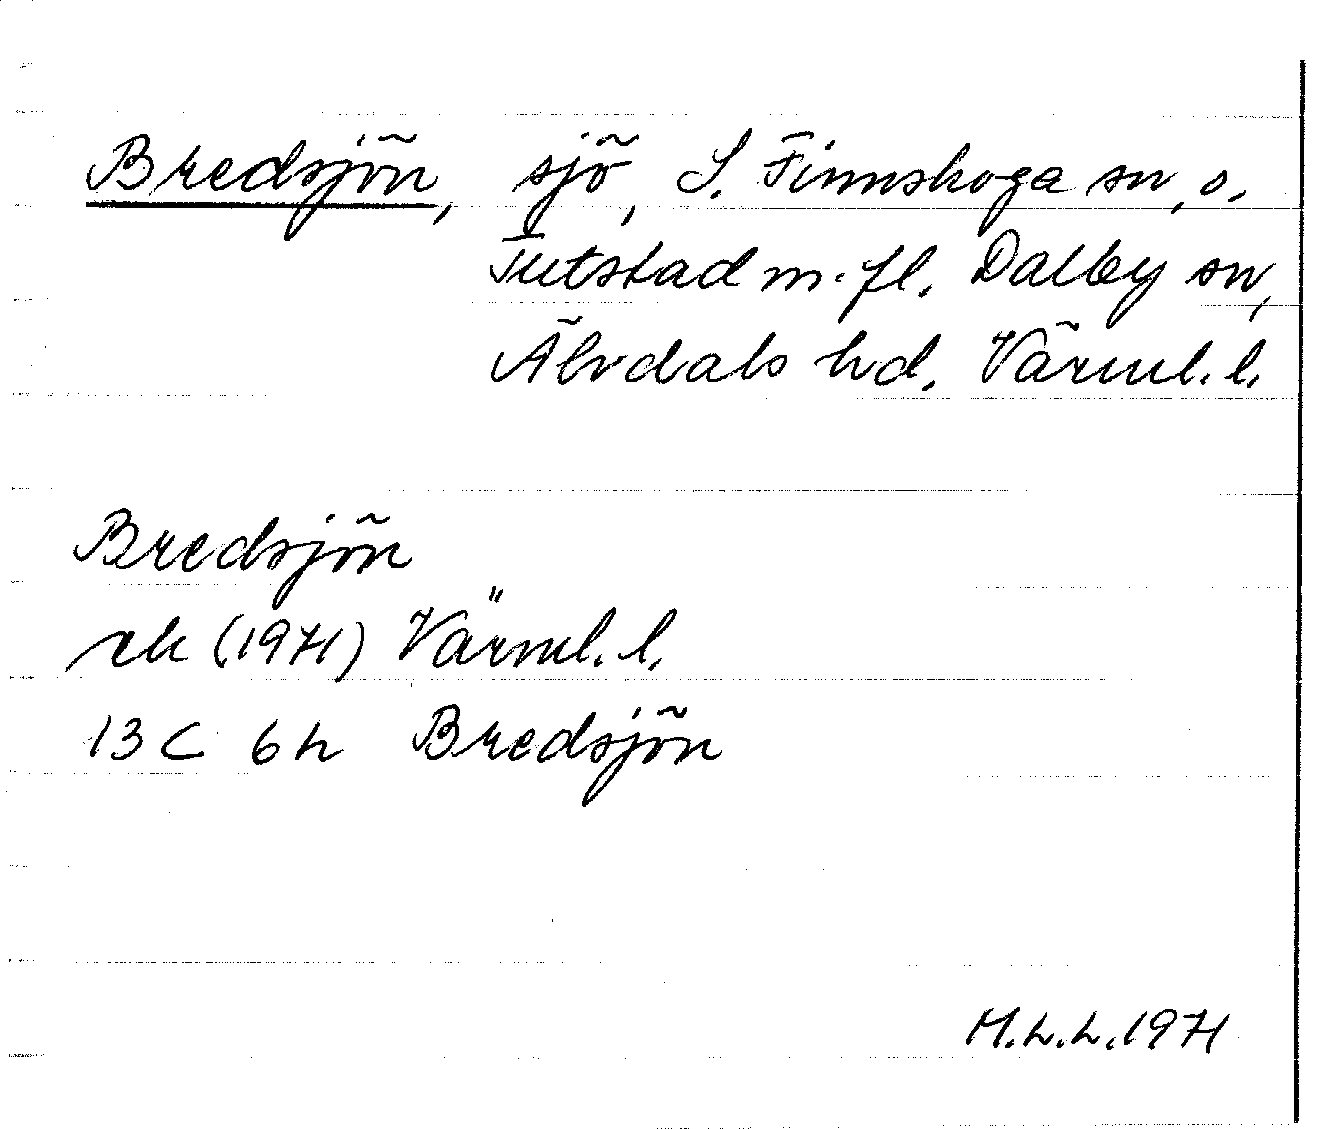 Bredsjön, sjö, S. Finnskoga sn, o.
Tutstad m. fl. Dalby sn,
Älvdals hd. Värml. l.
Bredsjön
rk (1971) Värml. l.
13 C 6 h Bredsjön
M.L.L. 1971